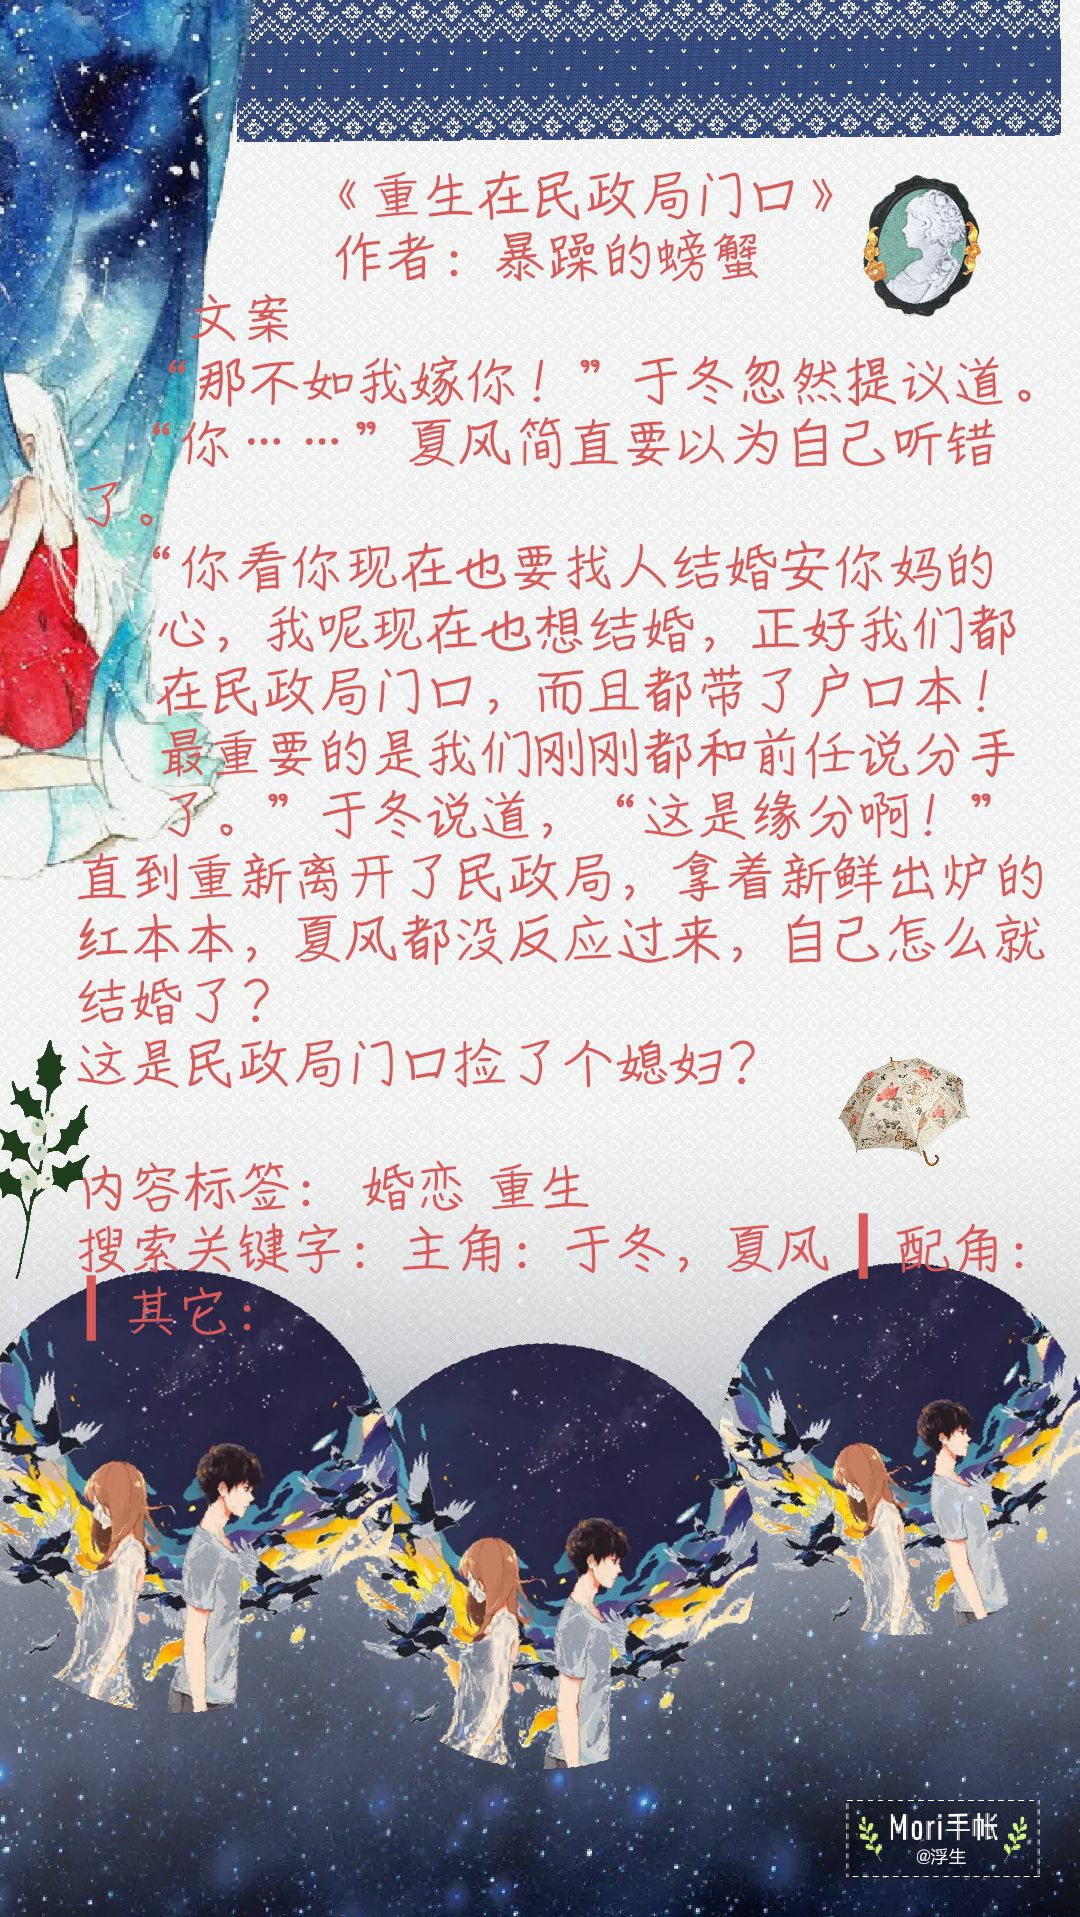 《重生在民政局门口》
作者：暴躁的螃蟹
文案
“那不如我嫁你！”于冬忽然提议道。
“你……”夏风简直要以为自己听错
了。
“你看你现在也要找人结婚安你妈的
心，我呢现在也想结婚，正好我们都
在民政局门口，而且都带了户口本！
最重要的是我们刚刚都和前任说分手
了。”于冬说道，“这是缘分啊！”
直到重新离开了民政局，拿着新鲜出炉的
红本本，夏风都没反应过来，自己怎么就
结婚了？
这是民政局门口捡了个媳妇？
内容标签： 婚恋 重生
搜索关键字：主角：于冬，夏风 ┃ 配角：
┃ 其它：
Mori手帐
@浮生